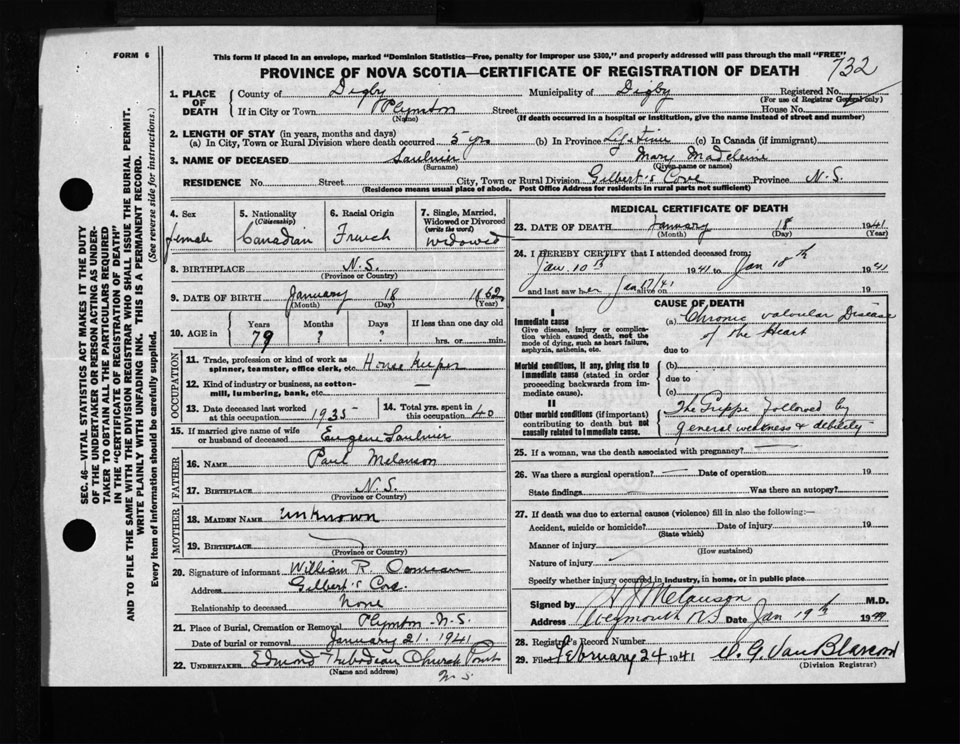 FORM 6
This form if placed in an envelope, marked "Dominion Statistics—Free, penalty for improper use $300," and properly addressed will pass through the mail "FREE"
732
PROVINCE OF NOVA SCOTIA—CERTIFICATE OF REGISTRATION OF DEATH
1. PLACE OF DEATH
County of Digby Municipality of Digby Registered No.
(For use of Registrar General only)
If in City or Town Plympton Street House No.
(Name) (If death occurred in a hospital or institution, give the name instead of street and number)
2. LENGTH OF STAY (in years, months and days)
(a) In City, Town or Rural Division where death occurred 5 yrs (b) In Province Life time (c) In Canada (if immigrant)
3. NAME OF DECEASED Saulnier Mary Madeleine
(Surname) (Given name or names)
RESIDENCE No. Street City, Town or Rural Division Gilbert's Cove Province N.S.
(Residence means usual place of abode. Post Office Address for residents in rural parts not sufficient)
SEC. 46—VITAL STATISTICS ACT MAKES IT THE DUTY
OF THE UNDERTAKER OR PERSON ACTING AS UNDER-
TAKER TO OBTAIN ALL THE PARTICULARS REQUIRED
IN THE "CERTIFICATE OF REGISTRATION OF DEATH"
AND TO FILE THE SAME WITH THE DIVISION REGISTRAR WHO SHALL ISSUE THE BURIAL PERMIT.
WRITE PLAINLY WITH UNFADING INK. THIS IS A PERMANENT RECORD.
Every item of information should be carefully supplied. (See reverse side for instructions.)
4. Sex
female
5. Nationality
(Citizenship)
Canadian
6. Racial Origin
French
7. Single, Married,
Widowed or Divorced
(write the word)
widowed
8. BIRTHPLACE N.S.
(Province or Country)
9. DATE OF BIRTH January 18 1862
(Month) (Day) (Year)
10. AGE in
Years Months Days If less than one day old
79 ? ? hrs. or min.
OCCUPATION
11. Trade, profession or kind of work as
spinner, teamster, office clerk, etc. House keeper
12. Kind of industry or business, as cotton-
mill, lumbering, bank, etc. —
13. Date deceased last worked
at this occupation 1935
14. Total yrs. spent in
this occupation 40
15. If married give name of wife
or husband of deceased Eugene Saulnier
FATHER
16. NAME Paul Melanson
17. BIRTHPLACE N.S.
(Province or Country)
MOTHER
18. MAIDEN NAME unknown
19. BIRTHPLACE
(Province or Country)
20. Signature of informant William R. Comeau
Address Gilbert's Cove
Relationship to deceased None
21. Place of Burial, Cremation or Removal Plympton N.S.
Date of burial or removal January 21. 1941
22. UNDERTAKER Edmond Thibodeau Church Point
(Name and address)
N.S.
MEDICAL CERTIFICATE OF DEATH
23. DATE OF DEATH January 18 1941
(Month) (Day) (Year)
24. I HEREBY CERTIFY that I attended deceased from:
Jan. 10th 1941 to Jan 18th 1941
and last saw her alive on 19
CAUSE OF DEATH
I
Immediate cause
Give disease, injury or complica-
tion which caused death, not the
mode of dying, such as heart failure,
asphyxia, asthenia, etc.
(a) Chronic valvular Disease
of the Heart
due to
Morbid conditions, if any, giving rise to
immediate cause (stated in order
proceeding backwards from im-
mediate cause).
(b)
due to
(c)
II
Other morbid conditions (if important)
contributing to death but not
causally related to immediate cause.
The Grippe followed by
general weakness & debility
25. If a woman, was the death associated with pregnancy?
26. Was there a surgical operation? Date of operation 19
State findings Was there an autopsy?
27. If death was due to external causes (violence) fill in also the following:—
Accident, suicide or homicide? Date of injury 19
(State which)
Manner of injury
(How sustained)
Nature of injury
Specify whether injury occurred in industry, in home, or in public place
Signed by H J Melanson M.D.
Address Weymouth NS Date Jan 19th 19
28. Registrar's Record Number
29. Filed February 24 1941 W. G. Van Blarcom
(Division Registrar)